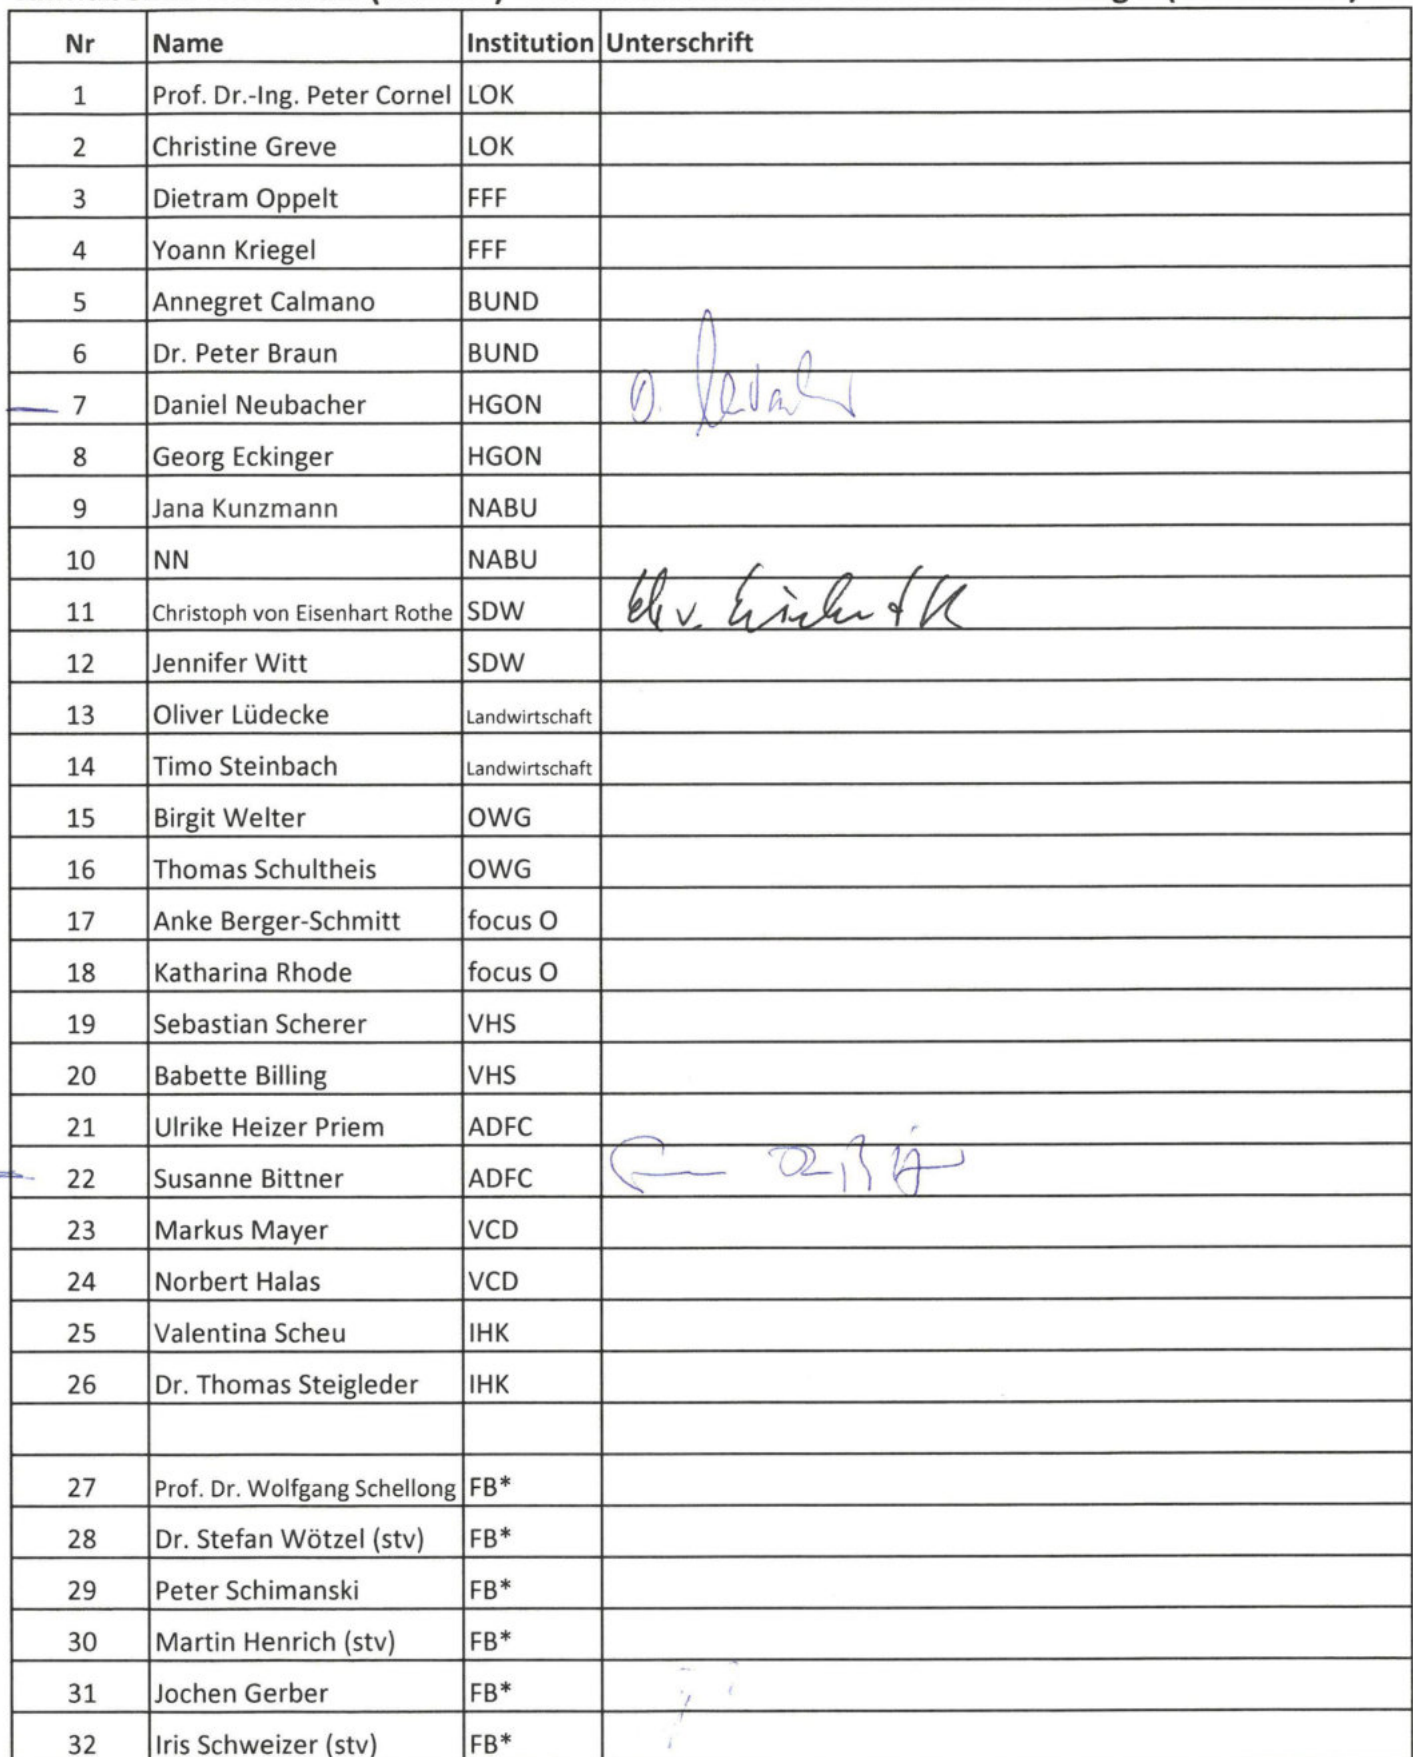 Nr Name Institution Unterschrift
1 Prof. Dr.-Ing. Peter Cornel LOK
2 Christine Greve LOK
3 Dietram Oppelt FFF
4 Yoann Kriegel FFF
5 Annegret Calmano BUND
6 Dr. Peter Braun BUND
7 Daniel Neubacher HGON D.
8 Georg Eckinger HGON
9 Jana Kunzmann NABU
10 NN NABU
11 Christoph von Eisenhart Rothe SDW v.
12 Jennifer Witt SDW
13 Oliver Lüdecke Landwirtschaft
14 Timo Steinbach Landwirtschaft
15 Birgit Welter OWG
16 Thomas Schultheis OWG
17 Anke Berger-Schmitt focus O
18 Katharina Rhode focus O
19 Sebastian Scherer VHS
20 Babette Billing VHS
21 Ulrike Heizer Priem ADFC
22 Susanne Bittner ADFC
23 Markus Mayer VCD
24 Norbert Halas VCD
25 Valentina Scheu IHK
26 Dr. Thomas Steigleder IHK
27 Prof. Dr. Wolfgang Schellong FB*
28 Dr. Stefan Wötzel (stv) FB*
29 Peter Schimanski FB*
30 Martin Henrich (stv) FB*
31 Jochen Gerber FB*
32 Iris Schweizer (stv) FB*